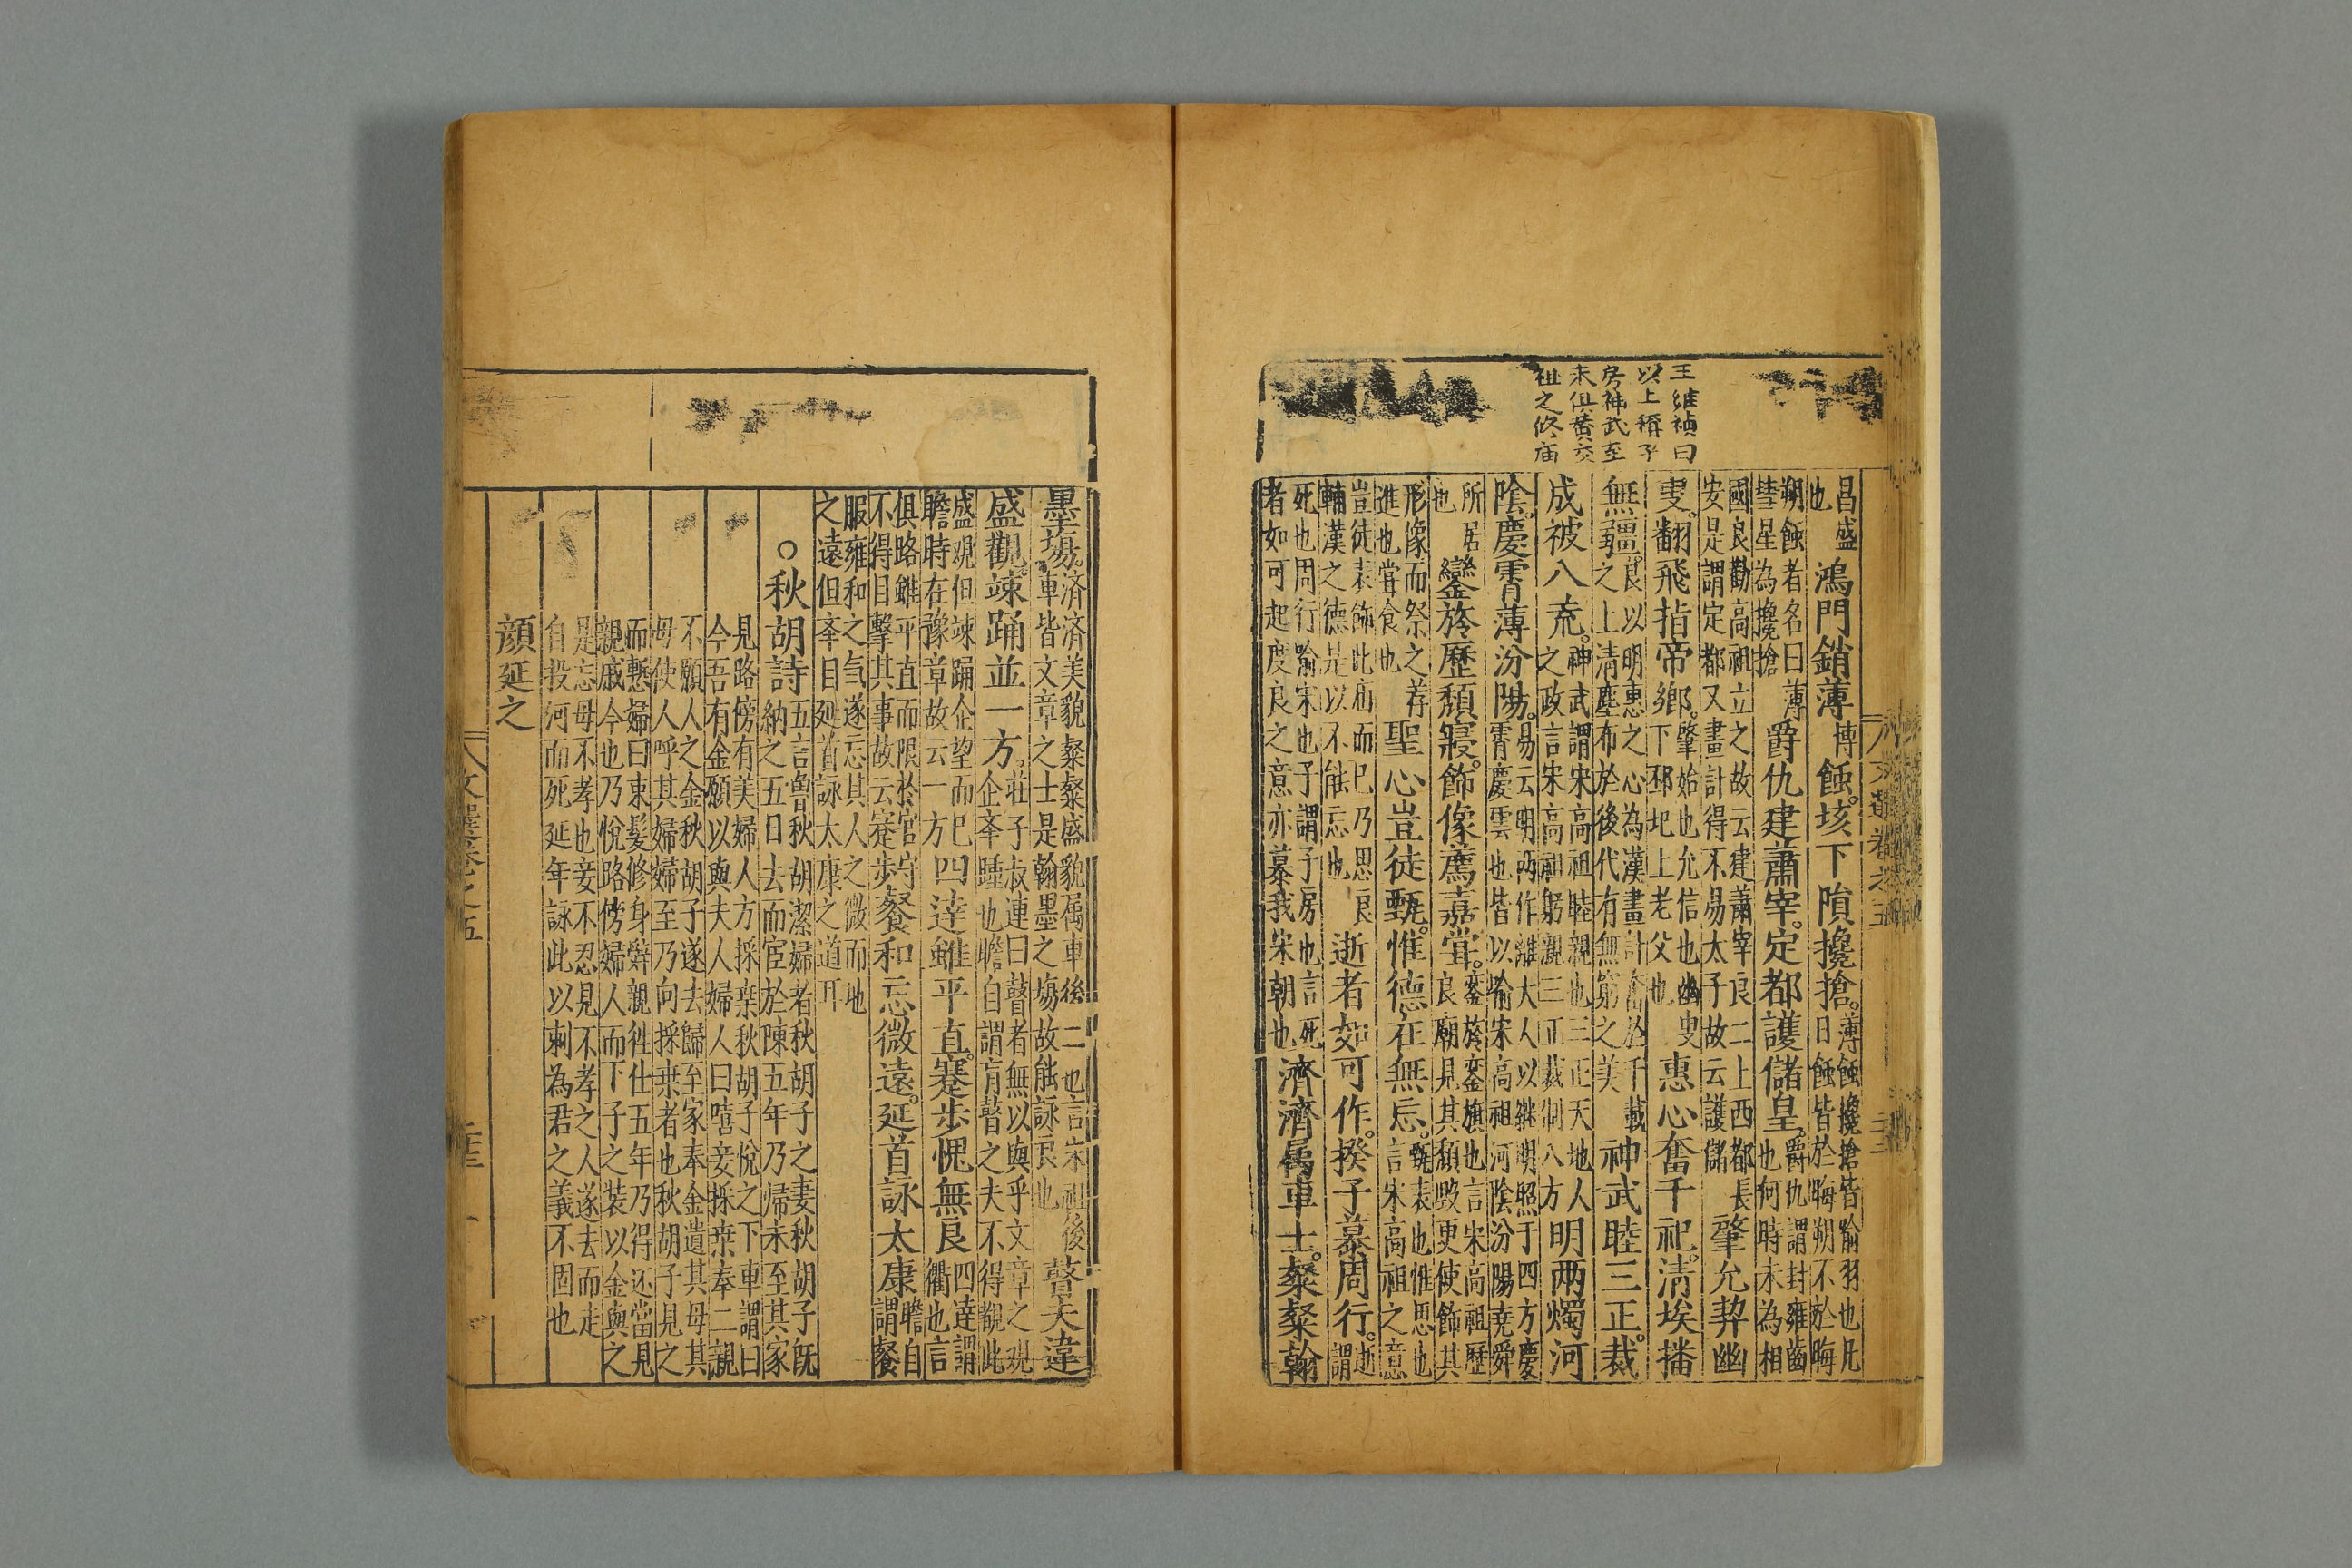 王維禎曰
以上稱子
房神武至
末但黃交
祖之修庙
昌盛也鴻門銷薄博蝕。垓下隕攙搶。薄蝕攙搶皆喻羽也凡日蝕皆於晦朔不於晦
朔蝕者名曰薄彗星為攙搶爵仇建蕭宰。定都護儲皇。爵仇謂封雍齒也何時未為相
國良勸高祖立之故云建蕭宰良二上西都長安是謂定都又畫計得不易太子故云護儲肇允契幽
叟。翻飛指帝鄉。肇始也允信也幽叟下邳圯上老父也惠心奮千祀。清埃播
無疆。良以明惠之心為漢畫計奮於千載之上清塵布於後代有無窮之美神武睦三正。裁
成被八荒。神武謂宋高祖睦親也三正天地人之政言宋高祖躬親三正裁制八方明兩燭河
陰。慶霄薄汾陽。易云明兩作離大人以継明照于四方慶霄慶雲也皆以喻宋高祖河陰汾陽堯舜
所居也鑾旂歷頹寢。飾像薦嘉甞。鑾旂鑾旗也言宋高祖歷良廟見其頹毀更使飾其
形像而祭之荐進也甞食也聖心豈徒甄。惟德在無忘。甄表也惟思也言宋高祖之意
豈徒表飾此庙而已乃思良輔漢之德是以不能忘也逝者如可作。揆子慕周行。逝謂
死也周行喻宋也子謂子房也言死者如可起度良之意亦慕我宋朝也濟濟屬車士。粲粲翰
文選卷之五
墨塲。済済美貌粲粲盛貌属車後二也言宋祖後車皆文章之士是翰墨之塲故能詠良也瞽夫違
盛觀。竦踊並一方。莊子叔連曰瞽者無以與乎文章之观企夅踵也瞻自謂盲瞽之夫不得觀此
盛观但竦踊企望而已瞻時在豫章故云一方四達雖平直。蹇步愧無良四達謂衢也言
俱路雖平直而限於官守不得目擊其事故云蹇步餐和忘微遠。延首詠太康瞻自謂餐
服雍和之気遂忘其人之微而地之遠但夅目延首詠太康之道耳
○秋胡詩五言魯秋胡潔婦者秋胡子之妻秋胡子既納之五日去而宦於陳五年乃帰未至其家
見路傍有美婦人方採桒秋胡子悅之下車謂曰今吾有金願以與夫人婦人曰嘻妾採桒奉二親
不願人之金秋胡子遂去歸至家奉金遺其母其母使人呼其婦婦至乃向採桒者也秋胡子見之
而慙婦曰束髮修身辤親徃仕五年乃得还當見親戚今也乃悅路傍婦人而下子之裝以金與之
是忘母不孝也妾不忍見不孝之人遂去而走自投河而死延年詠此以刺為君之義不固也
顔延之
文選卷之五